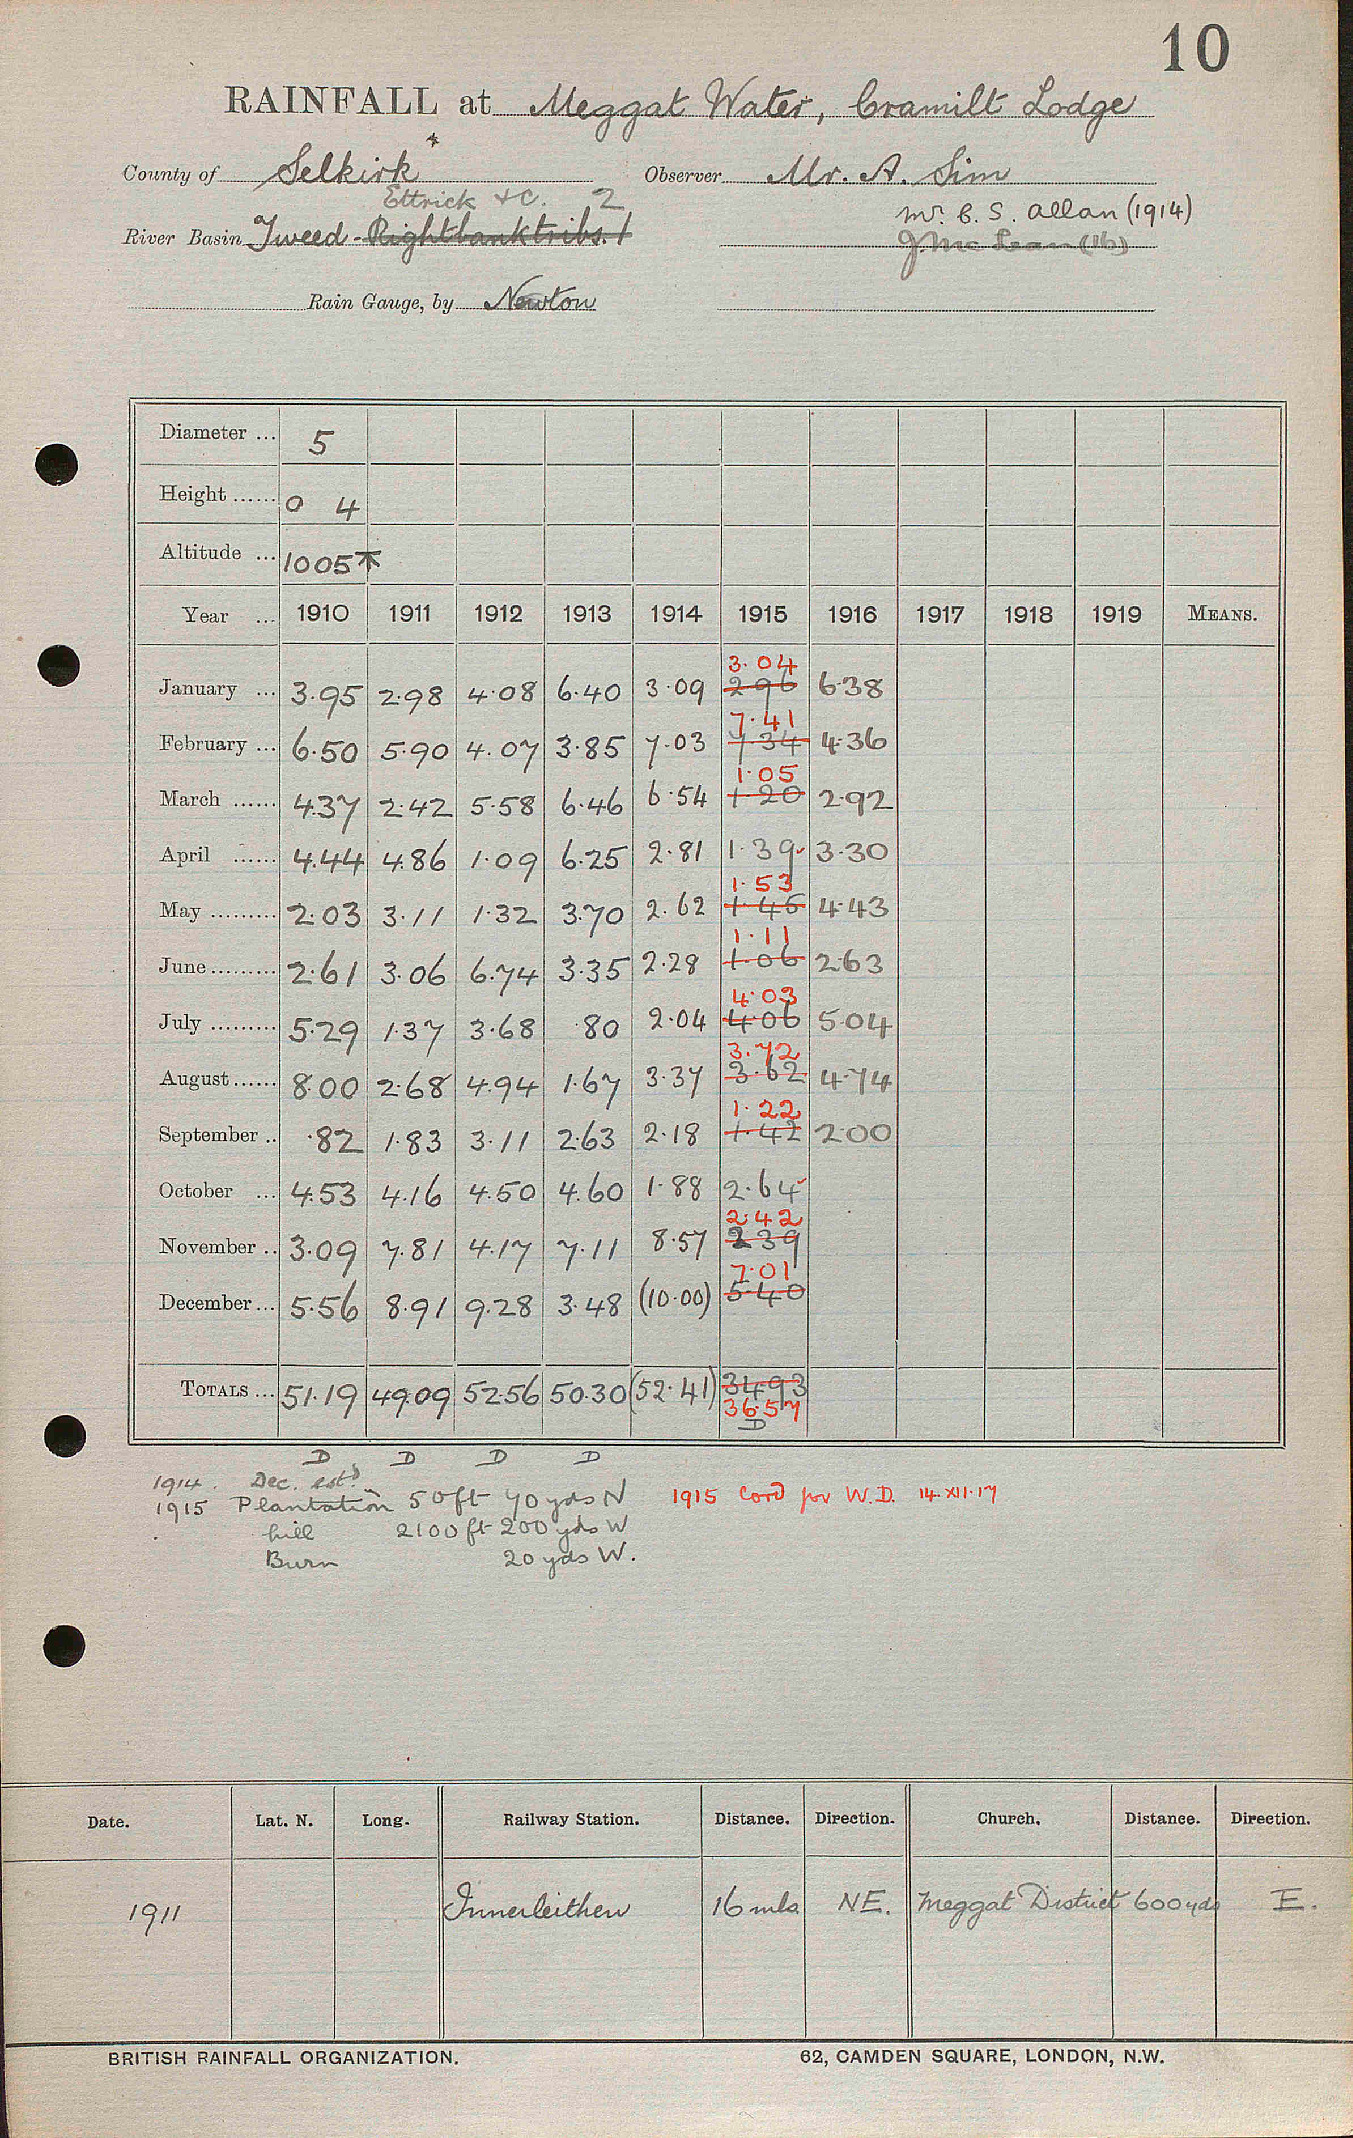 10
RAINFALL at Meggat Water, Cramilt Lodge
County of Selkirk Observer Mr. A. Sim
Ettrick &c. 2 Mr. C. S. Allan (1914)
River Basin Tweed - Right bank tribs. 1 J. McLean (16)
Rain Gauge, by Newton
Diameter ... 5
Height ...... 0 4
Altitude ... 1005
Year ... 1910 1911 1912 1913 1914 1915 1916 1917 1918 1919 MEANS.
3.04
January ... 3.95 2.98 4.08 6.40 3.09 2 96 6.38
7.41
February ... 6.50 5.90 4.07 3.85 7.03 7 34 4.36
1.05
March ...... 4.37 2.42 5.58 6.46 6.54 1 20 2.92
April ...... 4.44 4.86 1.09 6.25 2.81 1.39 3.30
1.53
May ......... 2.03 3.11 1.32 3.70 2.62 1.45 4.43
1.11
June ......... 2.61 3.06 6.74 3.35 2.28 1.06 2.63
4.03
July ......... 5.29 1.37 3.68 .80 2.04 4.06 5.04
3.72
August ...... 8.00 2.68 4.94 1.67 3.37 3.62 4.74
1.22
September .. .82 1.83 3.11 2.63 2.18 1.42 2.00
October ... 4.53 4.16 4.50 4.60 1.88 2.64
2.42
November .. 3.09 7.81 4.17 7.11 8.57 2 39
7.01
December ... 5.56 8.91 9.28 3.48 (10.00) 5.40
TOTALS ... 51.19 49.09 52.56 50.30 (52.41) 34.93
36.57
D
D D D D
1914. Dec. estd.
1915 Plantation 50ft 40 yds N 1915 Cord for W.D. 14.XII.17
hill 2100 ft 200 yds W
Burn 20 yds W.
Date. Lat. N. Long. Railway Station. Distance. Direction. Church. Distance. Direction.
1911 Innerleithen 16 mls NE. Meggat District 600 yds E.
BRITISH RAINFALL ORGANIZATION. 62, CAMDEN SQUARE, LONDON, N.W.